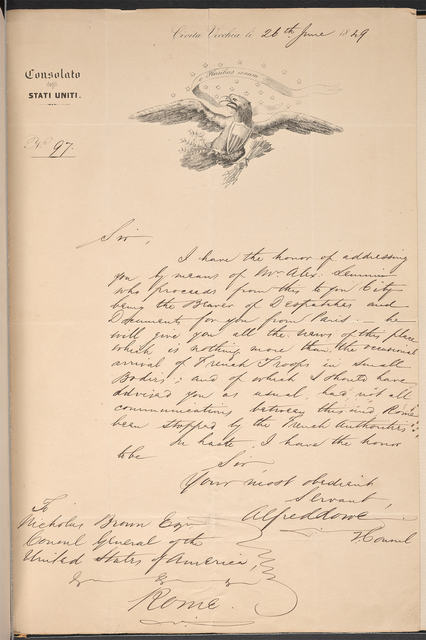 Civita Vecchia li 26th June 1849
Pluribus unum
Consolato
degli
STATI UNITI.
No 97.
Sir,
I have the honor of addressing
you by means of Mr. Alex.
who proceeds from this to your City
being the Bearer of Despatches and
Documents for you from Paris — he
will give you all the news of this place
which is nothing more than the occasional
arrival of French Troops in small
Bodies; and of which I should have
advised you as usual, had not all
communications between this and Rome
been stopped by the French Authorities.
In haste, I have the honor
to be
Sir
Your most obedient
Servant,
Alfred Lowe
V Consul
To
Nicholas Brown Esqr
Consul General of the
United States of America,
Rome.